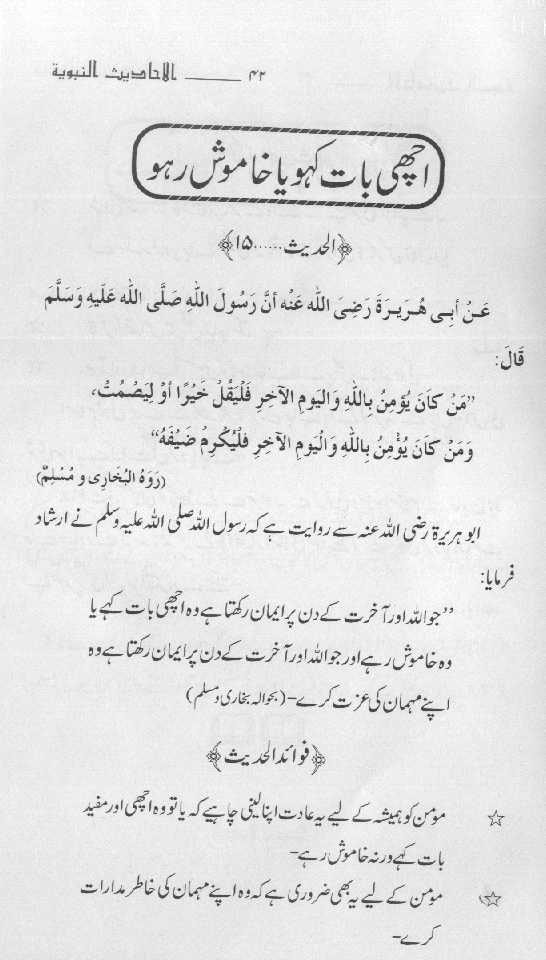 الاحادیث النبویة ــــــــ ۴۲
اچھی بات کہو یا خاموش رہو
﴿الحدیث......۱۵﴾
عَنْ أبِی هُرَیرَةَ رَضِیَ اللّٰه عَنْه أنَّ رَسُولَ اللّٰهِ صَلَّی اللّٰه عَلَیهِ وَسَلَّمَ
قَالَ:
”مَن كَانَ یُؤمِنُ بِاللّٰهِ وَالیَومِ الآخِرِ فَلْیَقُلْ خَیْرًا أوْ لِیَصْمُتْ،
وَمَنْ كَانَ یُؤْمِنُ بِاللّٰهِ وَالْیَومِ الآخِرِ فَلْیُكرِمْ ضَیْفَهُ“
(رَوَهُ البُخَارِی و مُسْلِمٌ)
ابو ہریرۃ رضی اللہ عنہ سے روایت ہے کہ رسول اللہ صلی اللہ علیہ وسلم نے ارشاد
فرمایا:
”جو اللہ اور آخرت کے دن پر ایمان رکھتا ہے وہ اچھی بات کہے یا
وہ خاموش رہے اور جو اللہ اور آخرت کے دن پر ایمان رکھتا ہے وہ
اپنے مہمان کی عزت کرے۔ (بحوالہ بخاری و مسلم)
﴿فوائد الحدیث﴾
☆ مؤمن کو ہمیشہ کے لیے یہ عادت اپنا لینی چاہیے کہ یا تو وہ اچھی اور مفید
بات کہے ورنہ خاموش رہے۔
☆ مؤمن کے لیے یہ بھی ضروری ہے کہ وہ اپنے مہمان کی خاطر مدارات
کرے۔